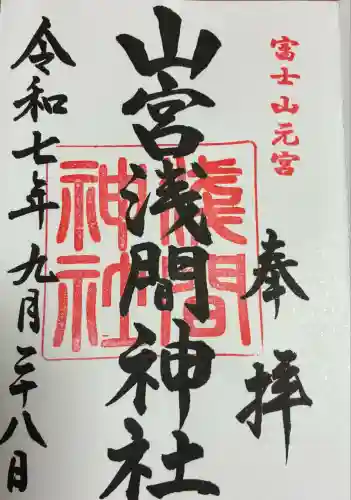 富士山元宮
奉拝
山宮浅間神社
淺間神社
令和七年九月二十八日